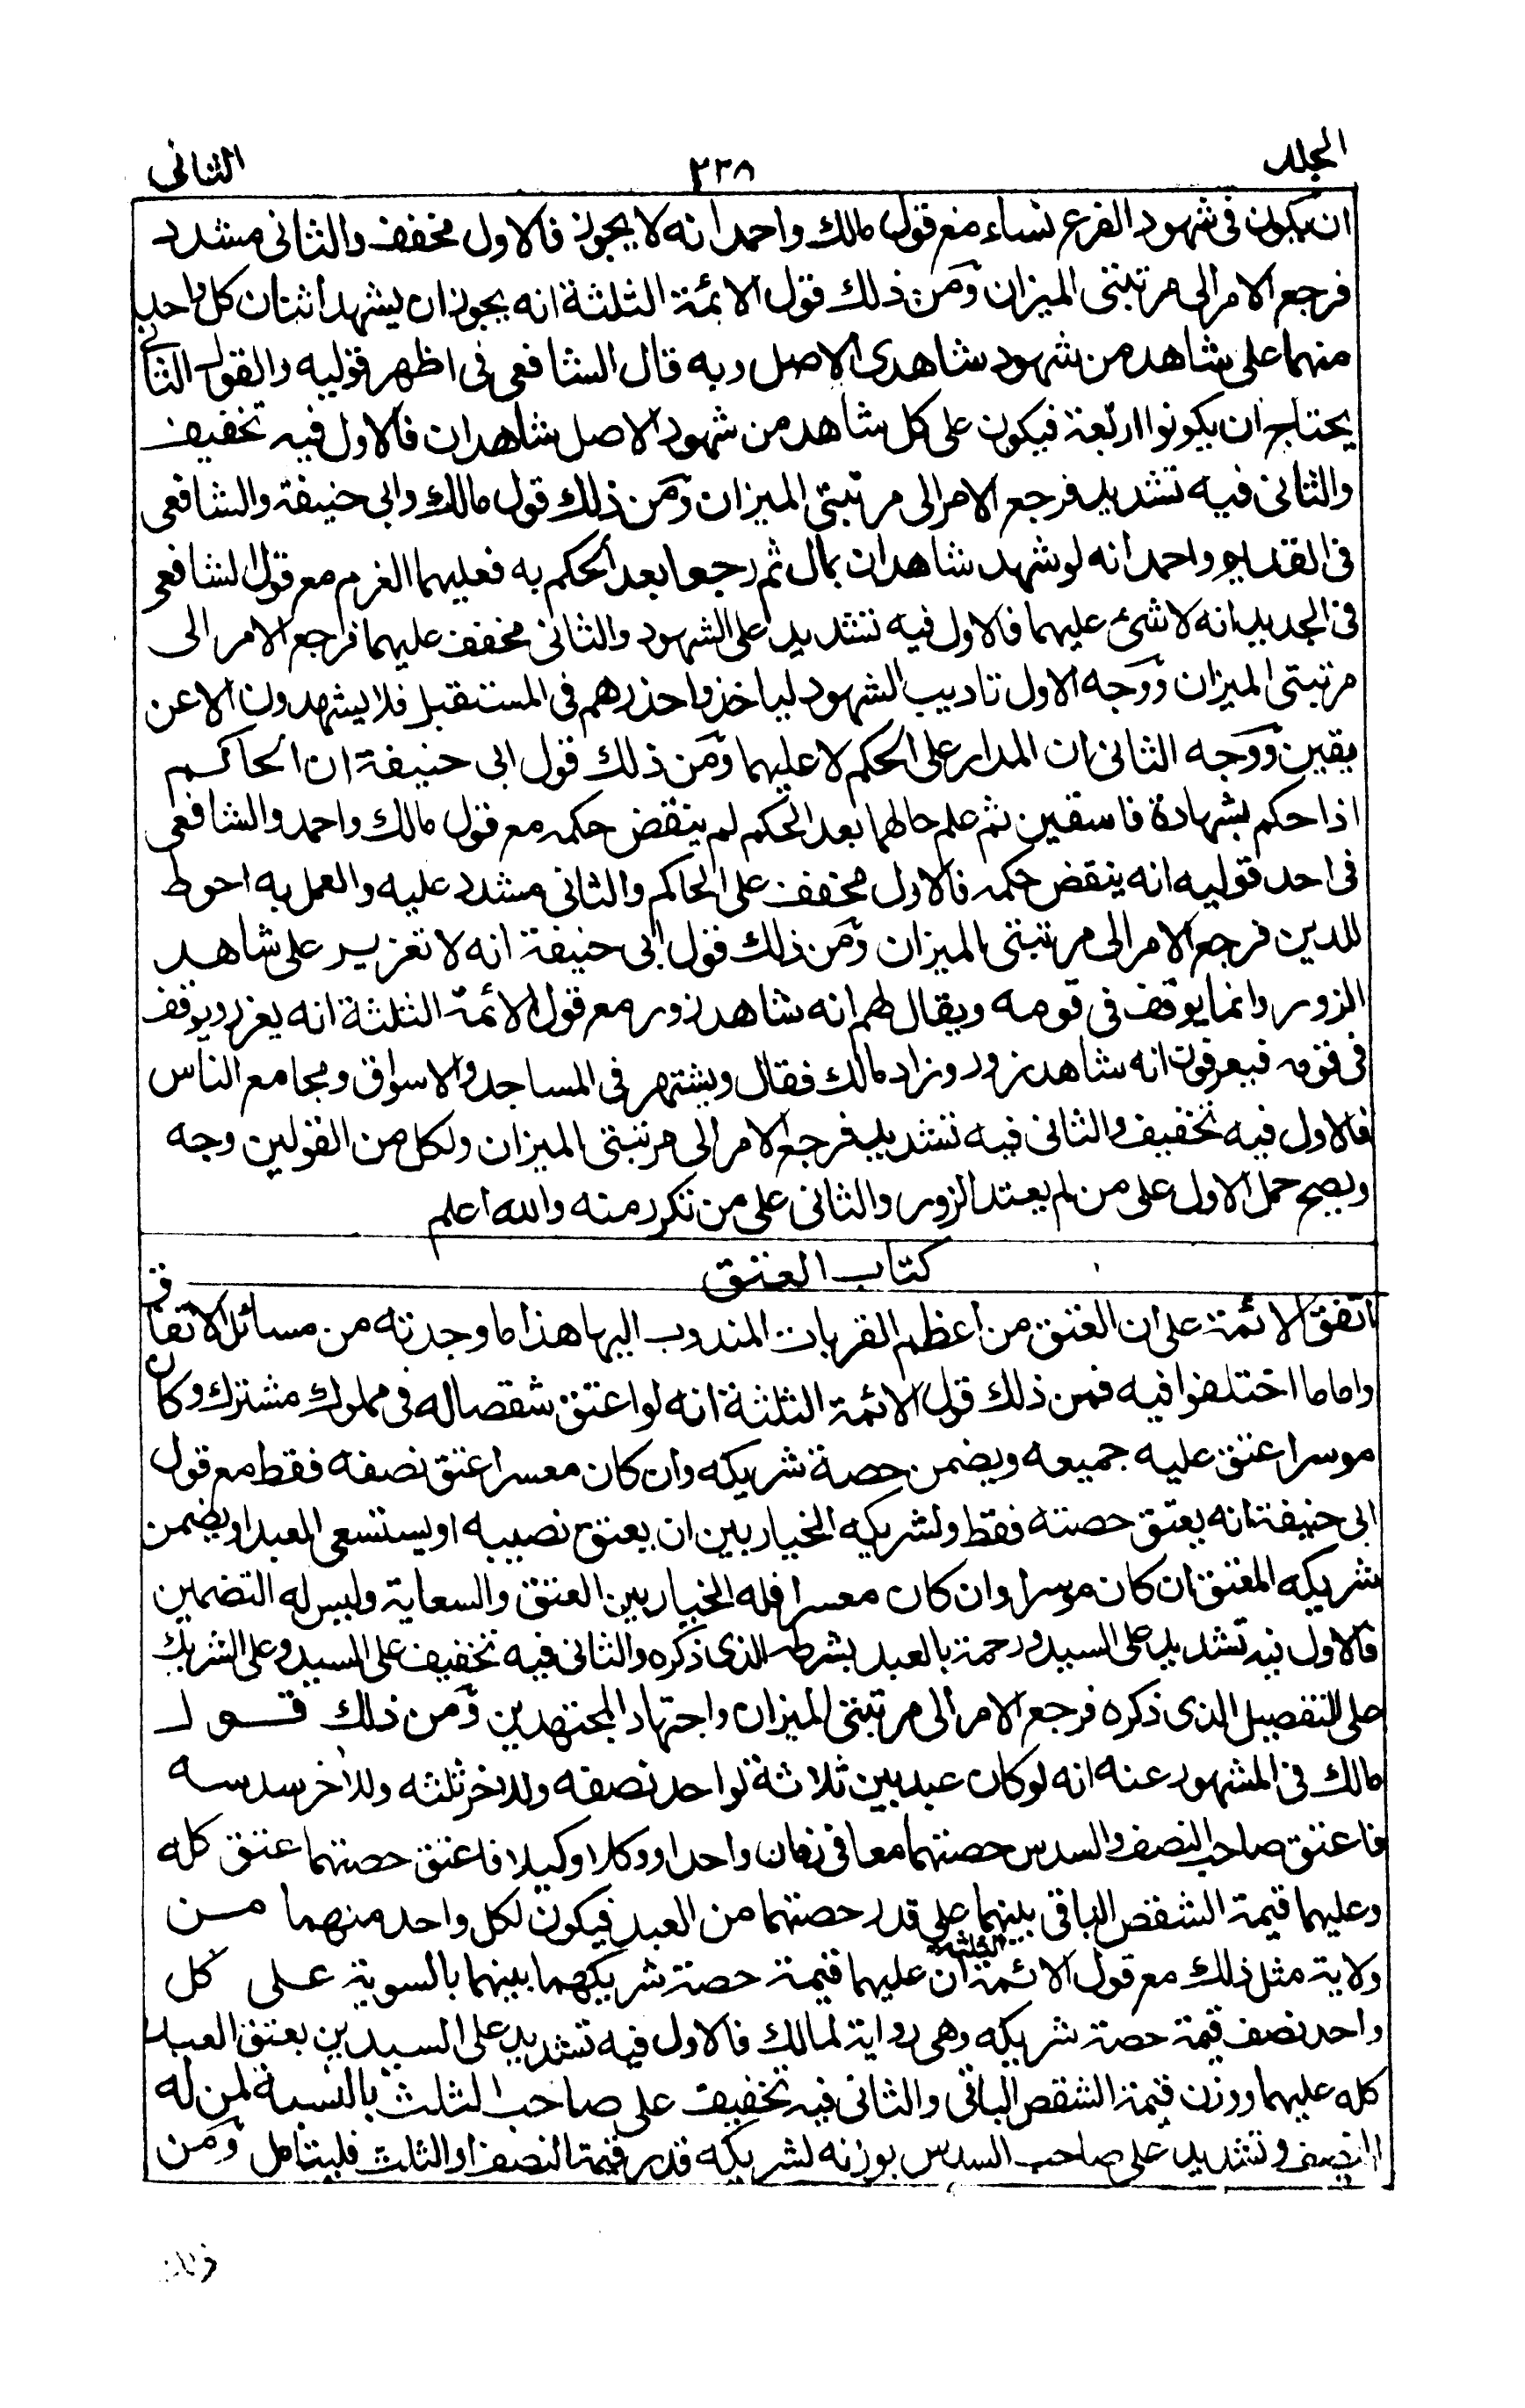 الجلد ٢٣٨ الثانى
ان يكون فى شهود الفرع نساء مع قول مالك واحمد انه لا يجوز فالاول مخفف والثانى مشدد
فرجع الامر الى مرتبتى الميزان ومن ذلك قول الائمة الثلثة انه يجوز ان يشهد اثنان كل واحد
منهما على شاهد من شهود شاهدى الاصل وبه قال الشافعى فى اظهر قوليه والقول الثانى
يحتاج ان يكونوا اربعة فيكون على كل شاهد من شهود الاصل شاهدان فالاول فيه تخفيف
والثانى فيه تشديد فرجع الامر الى مرتبتى الميزان ومن ذلك قول مالك وابى حنيفة والشافعى
فى القديم واحمد انه لو شهد شاهدان بمال ثم رجعا بعد الحكم به فعليهما الغرم مع قول الشافعى
فى الجديد انه لا شئ عليهما فالاول فيه تشديد على الشهود والثانى مخفف عليهما فرجع الامر الى
مرتبتى الميزان ووجه الاول تاديب الشهود لياخذوا حذرهم فى المستقبل فلا يشهدون الا عن
يقين ووجه الثانى ان المدار على الحكم لا عليهما ومن ذلك قول ابى حنيفة ان الحاكم
اذا حكم بشهادة فاسقين ثم علم حالهما بعد الحكم لم ينقض حكمه مع قول مالك واحمد والشافعى
فى احد قوليه انه ينقض حكمه فالاول مخفف على الحاكم والثانى مشدد عليه والعمل به احوط
للدين فرجع الامر الى مرتبتى الميزان ومن ذلك قول ابى حنيفة انه لا تعزير على شاهد
الزور وانما يوقف فى قومه ويقال لهم انه شاهد زور مع قول الائمة الثلثة انه يعزر ويوقف
فى قومه فيعرفون انه شاهد زور وزاد مالك فقال ويشتهر فى المساجد والاسواق ومجامع الناس
فالاول فيه تخفيف والثانى فيه تشديد فرجع الامر الى مرتبتى الميزان ولكل من القولين وجه
ويصح حمل الاول على من لم يعتد الزور والثانى على من تكرر منه والله اعلم
كتاب العتق
اتفق الائمة على ان العتق من اعظم القربات المندوب اليها هذا ما وجدته من مسائل الاتفاق
واما ما اختلفوا فيه فمن ذلك قول الائمة الثلثة انه لو اعتق شقصا له فى مملوك مشترك وكان
موسرا عتق عليه جميعه ويضمن حصة شريكه وان كان معسرا عتق نصفه فقط مع قول
ابى حنيفة انه يعتق حصته فقط ولشريكه الخيار بين ان يعتق نصيبه او يستسعى العبد او يضمن
شريكه المعتق ان كان موسرا وان كان معسرا فله الخيار بين العتق والسعاية وليس له التضمين
فالاول فيه تشديد على السيد ورحمة بالعبد بشرطه الذى ذكره والثانى فيه تخفيف على السيد وعلى الشريك
على التفصيل الذى ذكره فرجع الامر الى مرتبتى الميزان واجتهاد المجتهدين ومن ذلك قول
مالك فى المشهور عنه انه لو كان عبد بين ثلاثة لواحد نصفه ولاخر ثلثه وللاخر سدسه
فاعتق صاحب النصف والسدس حصتهما معا فى زمان واحد او وكلا وكيلا فاعتق حصتهما عتق كله
وعليهما قيمة الشقص الباقى بينهما على قدر حصتهما من العبد فيكون لكل واحد منهما من
ولاية مثل ذلك مع قول الائمة الثلثة ان عليهما قيمة حصة شريكهما بينهما بالسوية على كل
واحد نصف قيمة حصة شريكه وهى رواية لمالك فالاول فيه تشديد على السيدين بعتق العبد
كله عليهما ووزن قيمة الشقص الباقى والثانى فيه تخفيف على صاحب الثلث بالنسبة لمن له
النصف وتشديد على صاحب السدس بوزنه لشريكه قدر قيمة النصف او الثلث فليتامل ومن